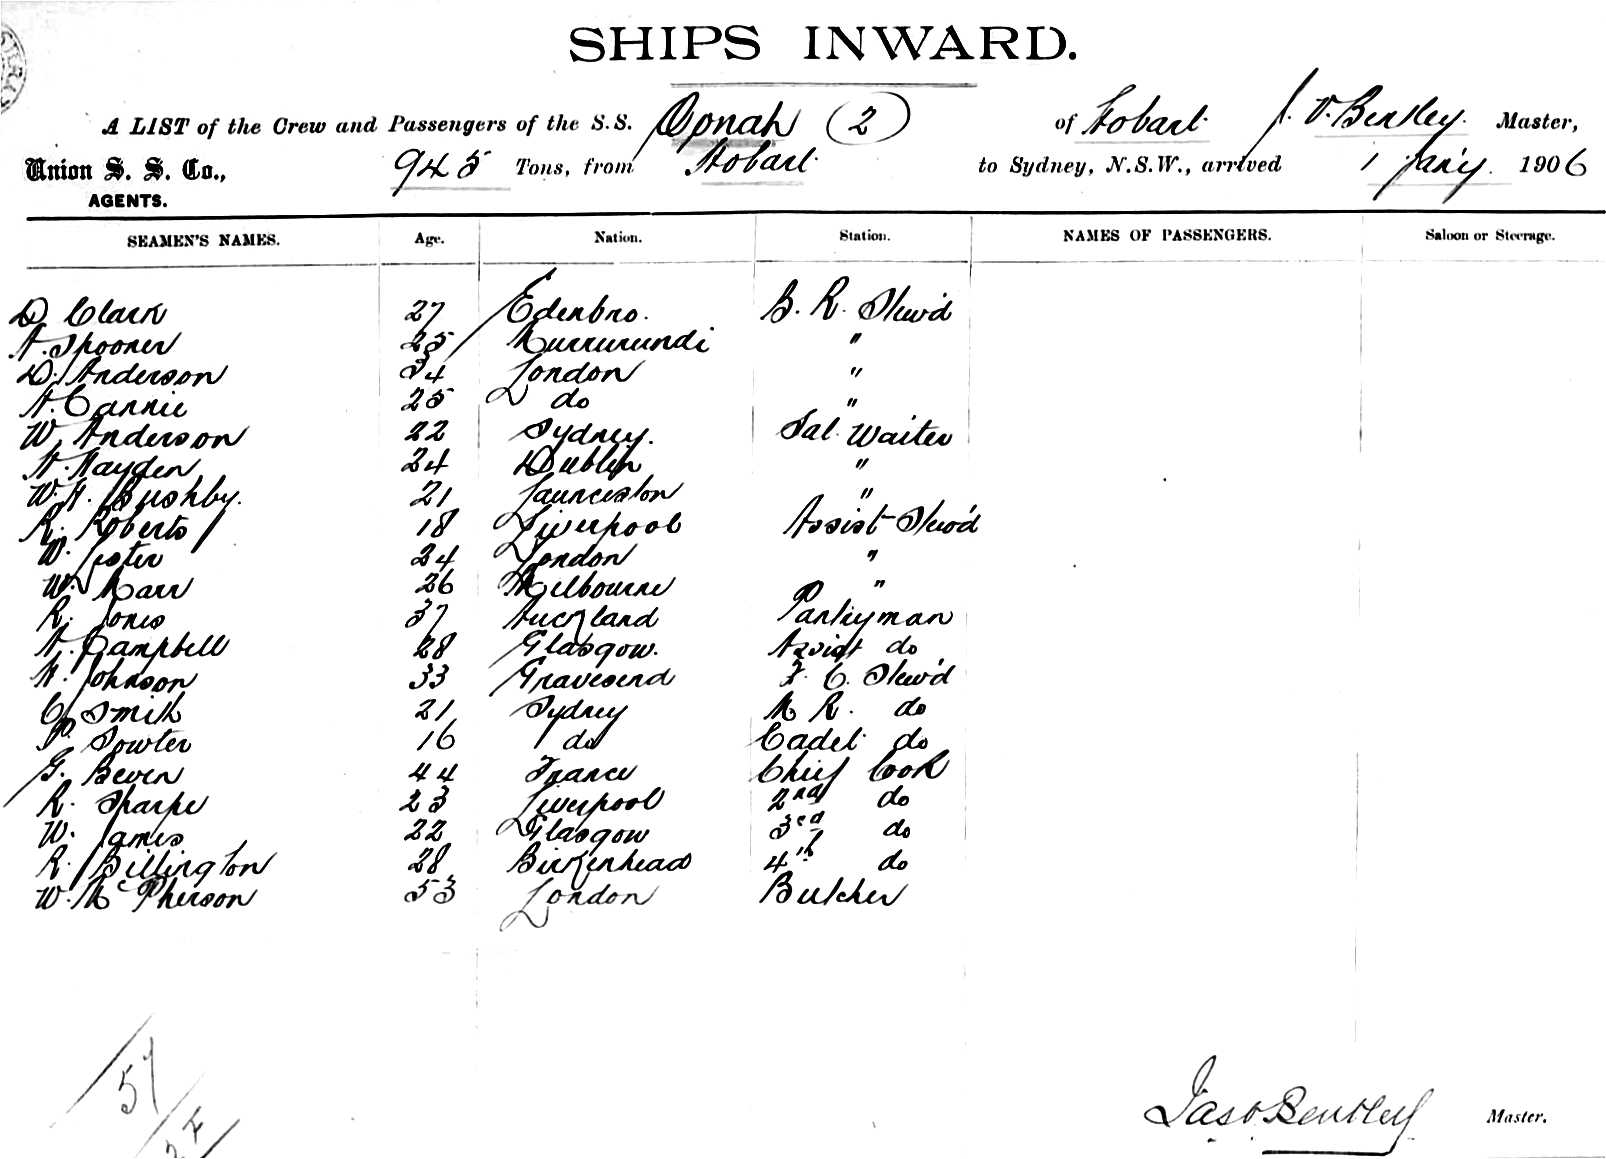 SHIPS INWARD.
A LIST of the Crew and Passengers of the S.S. Oonah (2) of Hobart J. V. Bentley. Master,
Union S. S. Co., 945 Tons, from Hobart to Sydney, N.S.W., arrived 1 Jan'y. 1906
AGENTS.
SEAMEN'S NAMES. Age. Nation. Station. NAMES OF PASSENGERS. Saloon or Steerage.
D. Clark 27 Edenbro. B. R. Stew'd
A. Spooner 25 Murrurundi "
D. Anderson 34 London "
A. Cannie 25 do "
W. Anderson 22 Sydney. Sal. Waiter
H. Hayden 24 Dublin "
W. H. Bushby. 21 Launceston "
R. Roberts 18 Liverpool Assist Stew'd
W. 24 London "
W. Marr 26 Melbourne "
R. Jones 37 Auckland Pantryman
A. Campbell 28 Glasgow. Assist do
H. Johnson 33 Gravesend F. C. Stew'd
C. Smith 21 Sydney M R. do
P. Sowter 16 do Cadet do
G. Beven 44 France Chief Cook
R. Sharpe 23 Liverpool 2nd do
W. James 22 Glasgow 3rd do
R. Billington 28 Birkenhead 4th do
W. McPherson 53 London Butcher
57
Jas V Bentley Master.